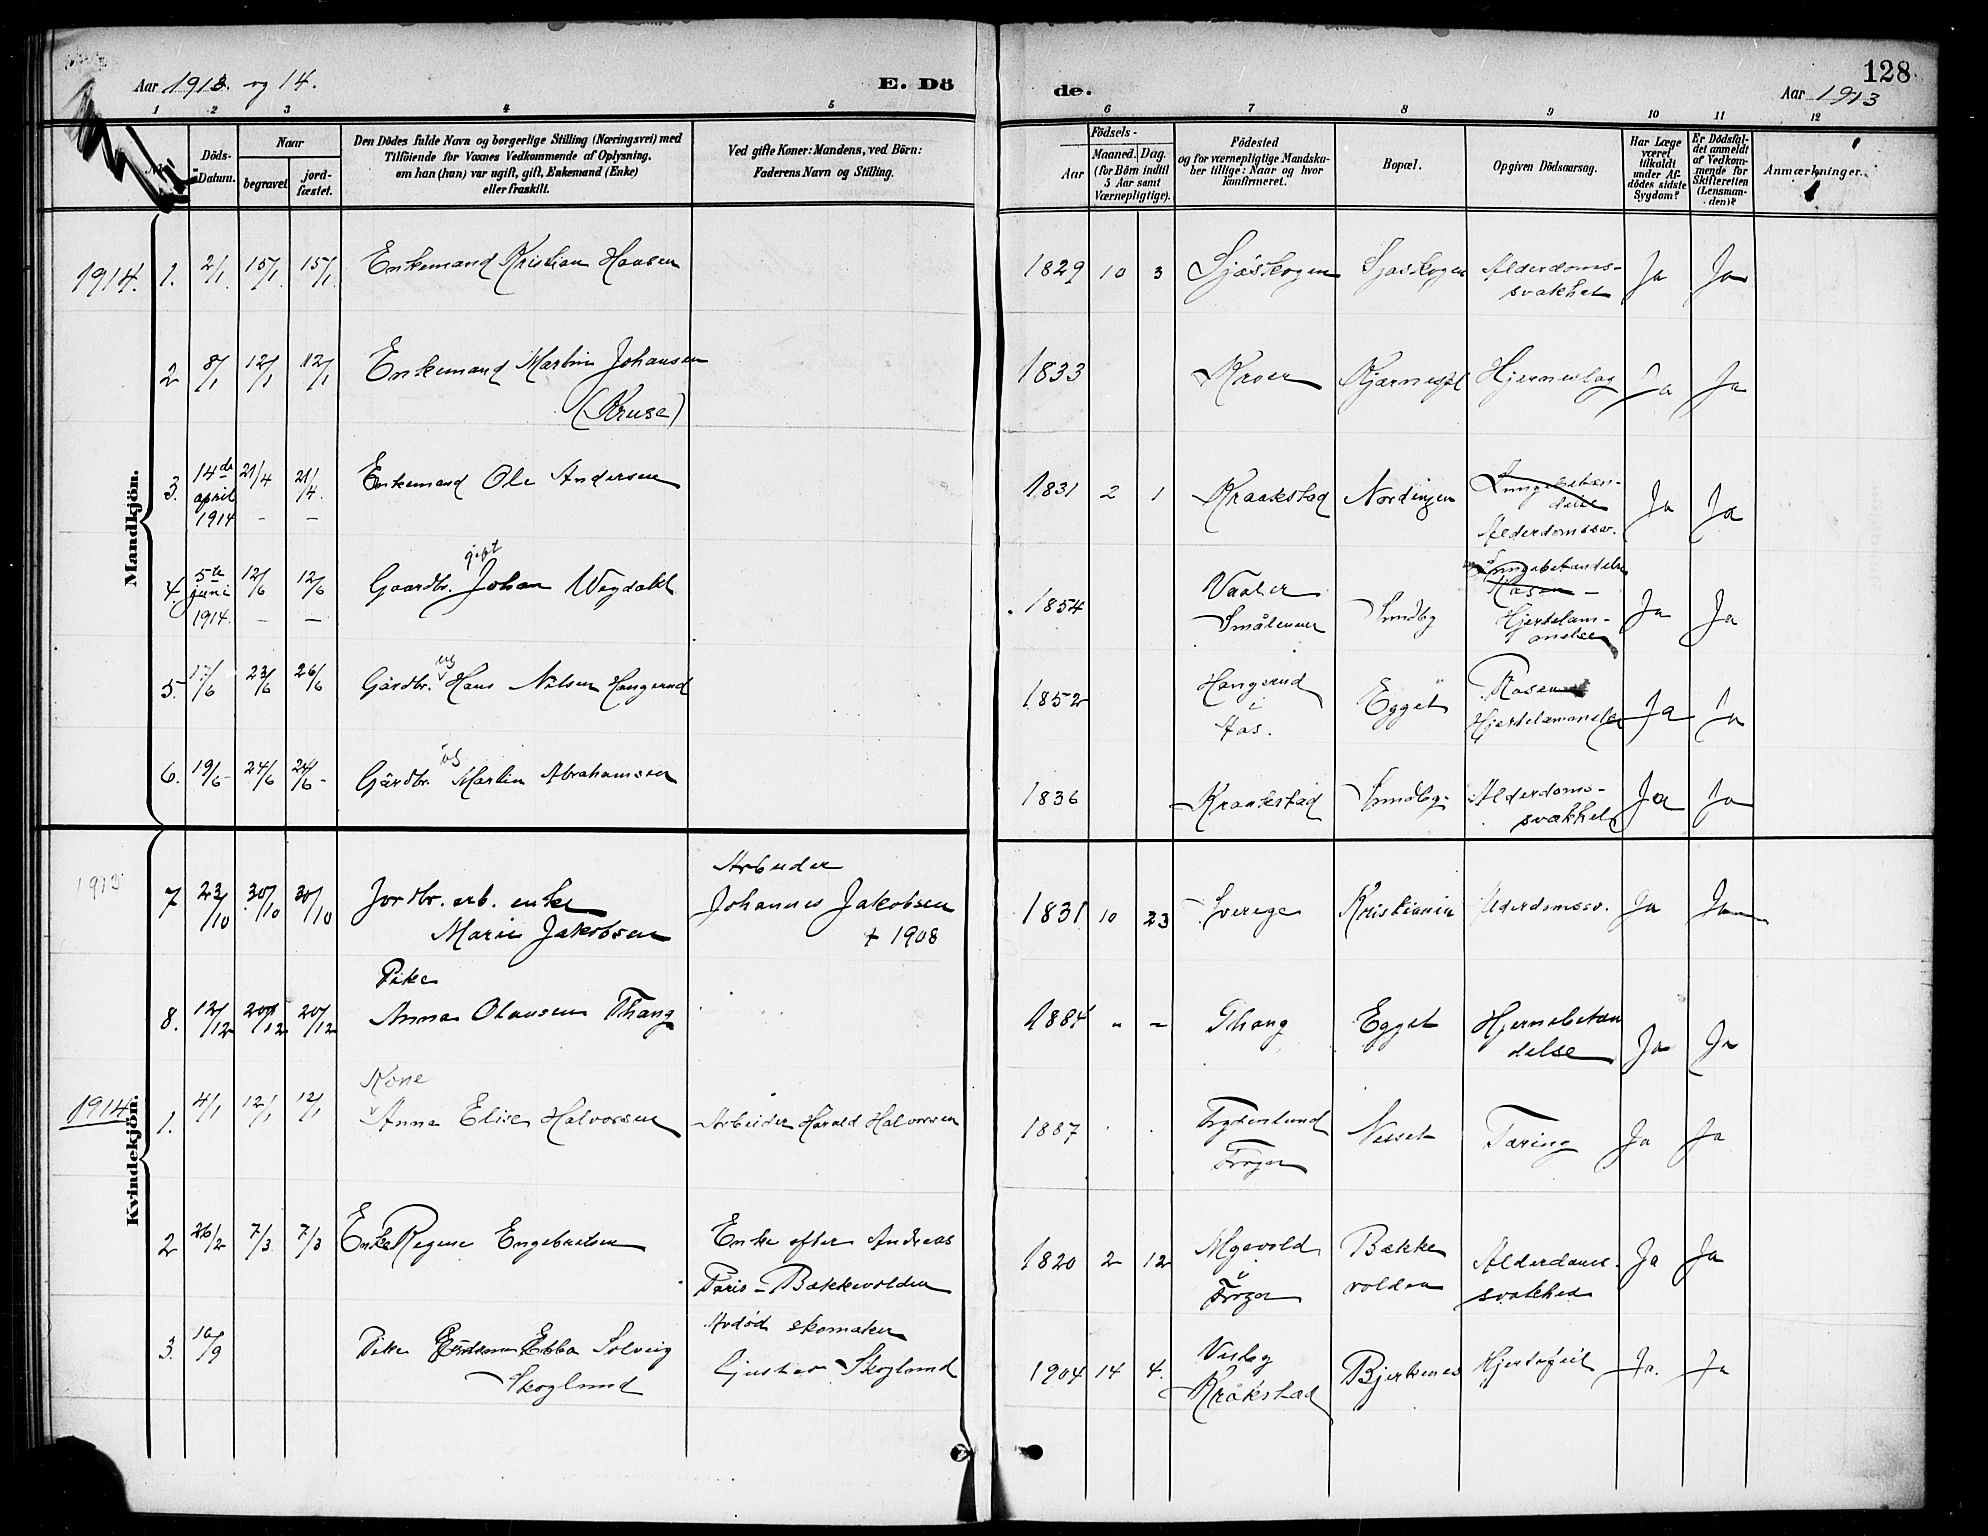 128
Aar 1913 og 14.
E. Dö
de.
Aar 1913
1 2 3 4 5 6 7 8 9 10 11 12
Döds-
Datum.
Naar
begravet.
jord-
fæstet.
Den Dödes fulde Navn og borgerlige Stilling (Næringsvei) med
Tilföiende for Voxnes Vedkommende af Oplysning,
om han (hun) var ugift, gift, Enkemand (Enke)
eller fraskilt.
Ved gifte Koner: Mandens, ved Börn:
Faderens Navn og Stilling.
Födsels-
Aar
Maaned. Dag.
(for Börn indtil
5 Aar samt
Værnepligtige).
Födested
og for værnepligtige Mandska-
ber tillige: Naar og hvor
konfirmeret.
Bopæl.
Opgiven Dödsaarsag.
Har Læge
været
tilkaldt
under Af-
dödes sidste
Sygdom?
Er Dödsfal-
det anmeldt
af Vedkom-
mende for
Skifteretten
(Lensman-
den)?
Anmærkninger.
Mandkjön.
1914. 1. 2/1 15/1 15/1 Enkemand Kristian Hansen 1829 10 3 Sjöskogen Sjøskogen Alderdoms-
svakhet Ja Ja
2 8/1 12/1 12/1 Enkemand Martin Johansen
(Kruse) 1833 Kroer Kjærnes Hjerneslag Ja Ja
3. 14de april 1914 21/4 21/4 Enkemand Ole Andersen 1831 2 1 Kraakstad Nordingen Lungebetæn-
delse
Alderdomssv. Ja Ja
4. 5te juni 1914. 12/6 12/6 Gaardbr. gift Johan Wegdahl 1854 Vaaler
Smålenene Sundby Lungebetændelse
Rosen -
Hjertelam-
melse Ja Ja
5. 17/6 23/6 26/6 Gårdbr. ug Hans Nilsen Haugerud 1852 Haugerud
i
Aas. Egget Rosen
Hjertelammelse Ja Ja
6. 19/6 24/6 24/6 Gårdbr. Martin Abrahamsen 1836 Kraakstad Sundby Alderdoms-
svakhet Ja Ja
Kvindekjön.
1913 7 23/10 30/10 30/10 Jordbr. arb. enke
Marie Jakobsen Arbeider
Johannes Jakobsen
+ 1908 1831 10 23 Sverege Kristiania Alderdomssv. Ja Ja
8. 12/12 20/12 20/12 Pike
Anna Olausen Thang 1884 " - Thang Egget Hjernebetæn
delse Ja Ja
1914 1. 4/1 12/1 12/1 Kone
Anna Elise Halvorsen Arbeider Harald Halvorsen 1887 Frydenlund
Frogn Nesset Tæring Ja Ja
2 26/2 7/3 7/3 Enke Regine Engebretsen Enke efter Andreas
Paris - Bækkevolden 1820 2 12 Myrvold
i
Frogn Bække
volden Alderdoms-
svakhed Ja Ja
3. 10/9 Pike Ebba Solveig
Skoglund Avdød skomaker
Gustav Skoglund 1904 14 4. Visteg
Kråkstad Bjerkenes Hjertefeil Ja. Ja